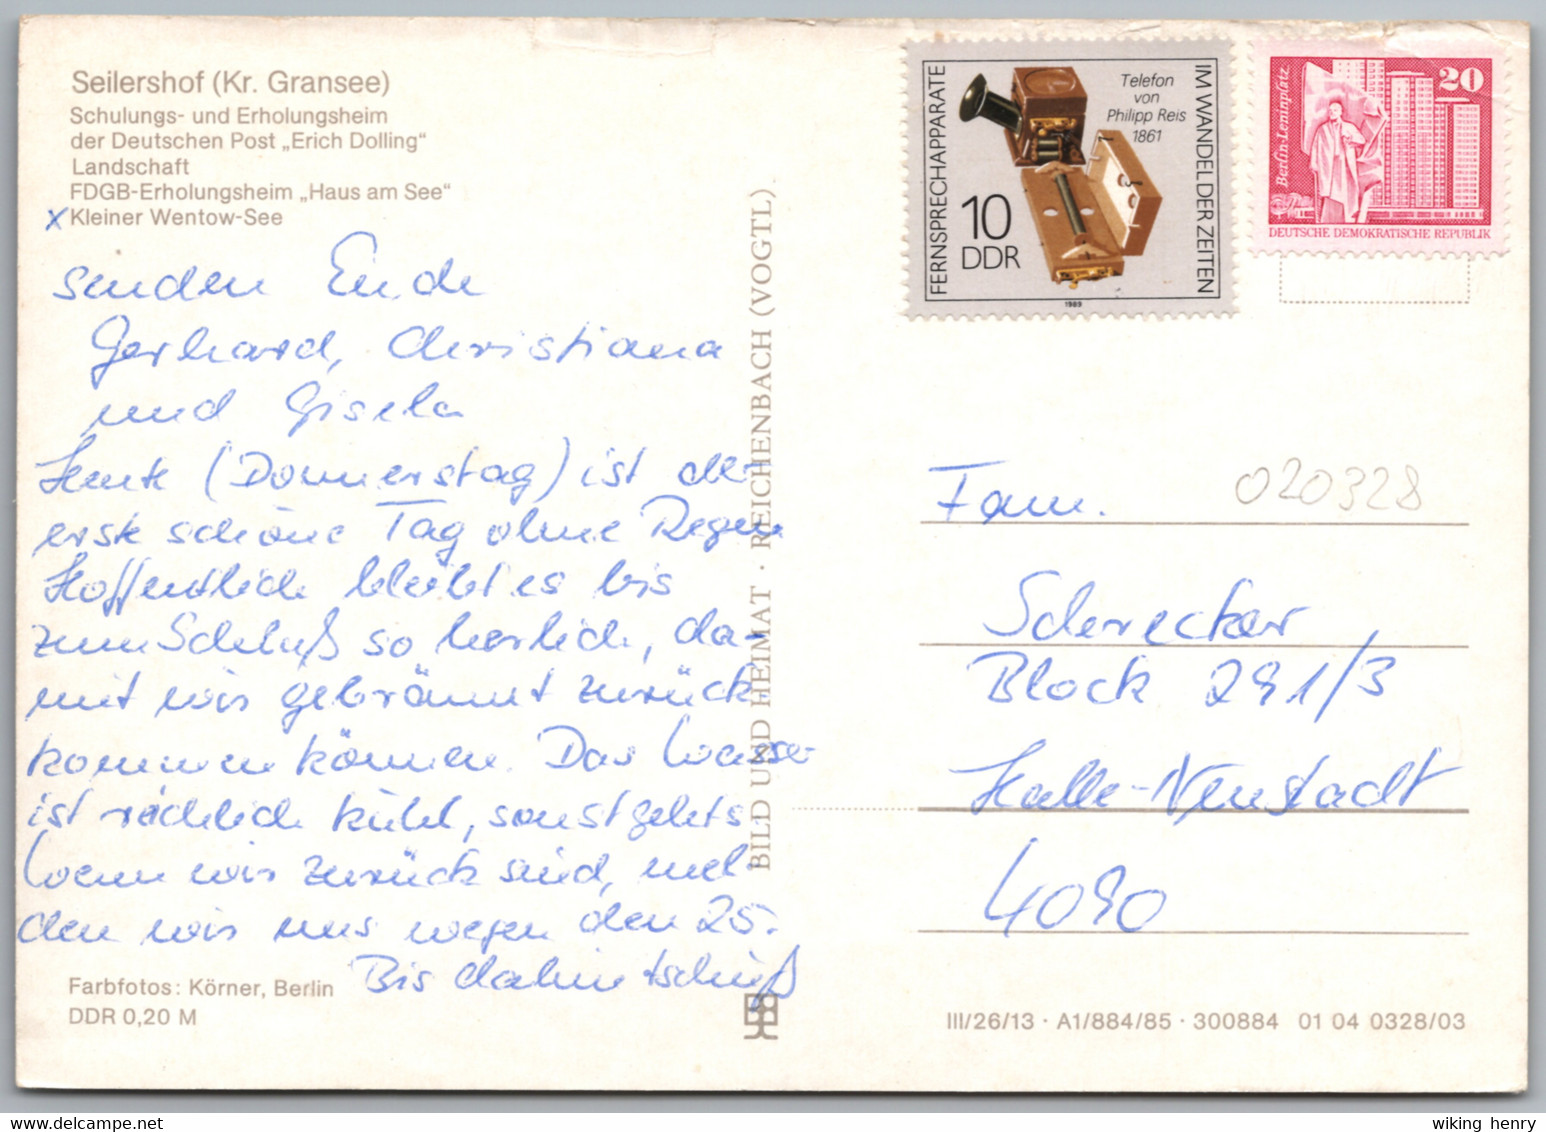 Seilershof (Kr. Gransee)
Schulungs- und Erholungsheim
der Deutschen Post „Erich Dolling“
Landschaft
FDGB-Erholungsheim „Haus am See“
x Kleiner Wentow-See
senden Euch
Gerhard, Christiana
und Gisela
Heute (Donnerstag) ist der
erste schöne Tag ohne Regen
Hoffentlich bleibt es bis
zum Schluß so herlich, da-
mit wir gebräunt zurück
kommen können. Das Wasser
ist reichlich kühl, sonst gehts
Wenn wir zurück sind, mel-
den wir uns wegen den 25.
Bis dahin tschüß
Farbfotos: Körner, Berlin
DDR 0,20 M
BILD UND HEIMAT · REICHENBACH (VOGTL)
FERNSPRECHAPPARATE
IM WANDEL DER ZEITEN
Telefon
von
Philipp Reis
1861
10
DDR
1989
Berlin-Leninplatz
20
DEUTSCHE DEMOKRATISCHE REPUBLIK
020328
Fam.
Block 291/3
Halle-Neustadt
4090
III/26/13 · A1/884/85 · 300884 01 04 0328/03
wiking henry